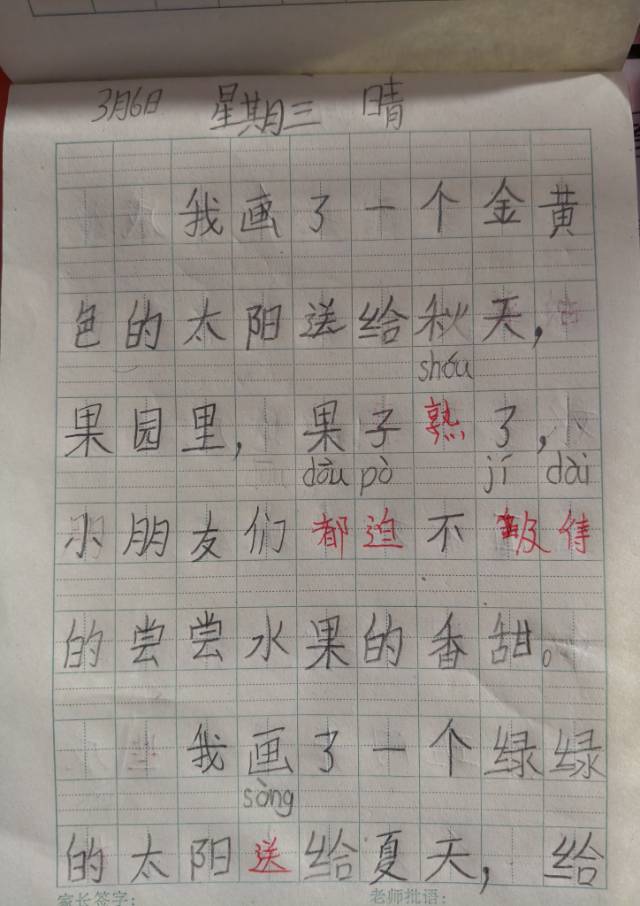 3月6日 星期三 晴
我画了一个金黄
色的太阳送给秋天,
shóu
果园里,果子熟了,
dōu pò jí dài
小朋友们都迫不及待
的尝尝水果的香甜。
我画了一个绿绿
sòng
的太阳送给夏天,给
家长签字: 老师批语: